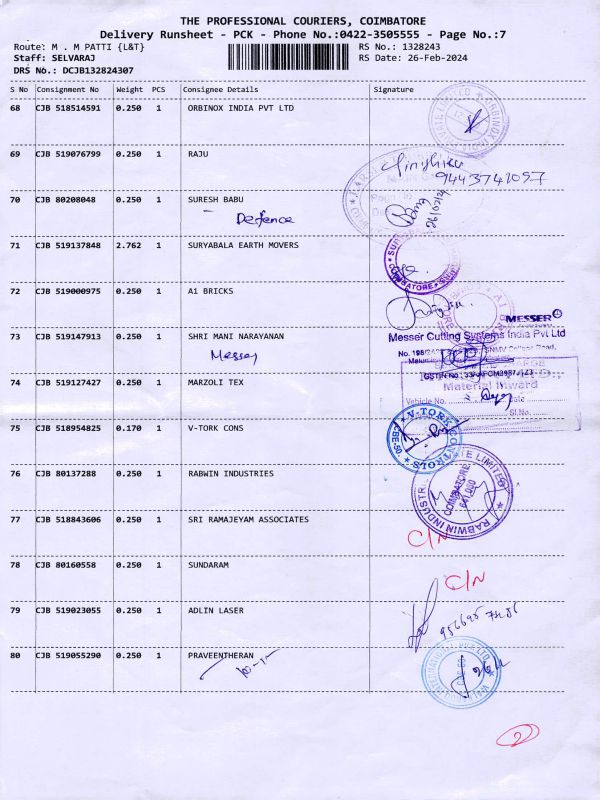 THE PROFESSIONAL COURIERS, COIMBATORE
Delivery Runsheet - PCK - Phone No.:0422-3505555 - Page No.:7
Route: M . M PATTI {L&T} RS No.: 1328243
Staff: SELVARAJ RS Date: 26-Feb-2024
DRS No.: DCJB132824307
S No Consignment No Weight PCS Consignee Details Signature
68 CJB 518514591 0.250 1 ORBINOX INDIA PVT LTD
69 CJB 519076799 0.250 1 RAJU
9443741097
70 CJB 80208048 0.250 1 SURESH BABU
Defence
71 CJB 519137848 2.762 1 SURYABALA EARTH MOVERS
COIMBATORE
72 CJB 519000975 0.250 1 A1 BRICKS
MESSER
73 CJB 519147913 0.250 1 SHRI MANI NARAYANAN
Messer Cutting Systems India Pvt Ltd
Messer
74 CJB 519127427 0.250 1 MARZOLI TEX
Material Inward
Vehicle No. Date
Sl.No.
75 CJB 518954825 0.170 1 V-TORK CONS
V-TORK CONTROLS
76 CJB 80137288 0.250 1 RABWIN INDUSTRIES
RABWIN INDUSTRIES PRIVATE LIMITED
COIMBATORE
77 CJB 518843606 0.250 1 SRI RAMAJEYAM ASSOCIATES
C/N
78 CJB 80160558 0.250 1 SUNDARAM
C/N
79 CJB 519023055 0.250 1 ADLIN LASER
80 CJB 519055290 0.250 1 PRAVEENTHERAN
2